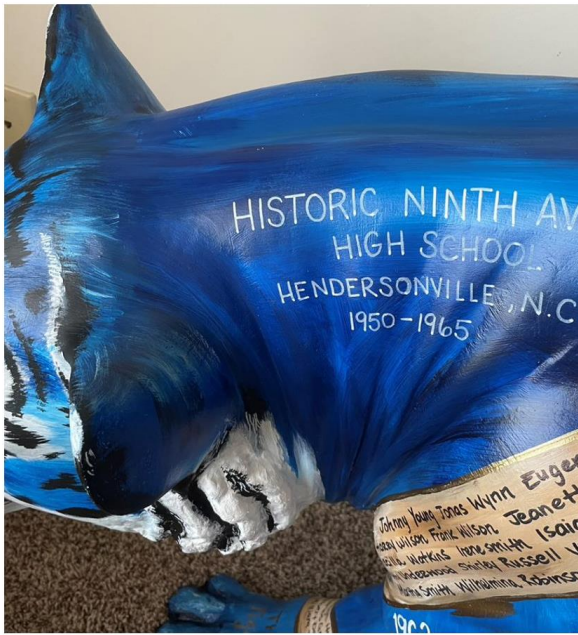 HISTORIC NINTH AV
HIGH SCHOOL
HENDERSONVILLE, N.C
1950-1965
Johnny Young Jonas Wynn Euger
Wilson Frank Wilson Jeanett
Watkins Irene smith Isaia
Underwood Shirley Russell
Smith Wilhelmina Robins
196